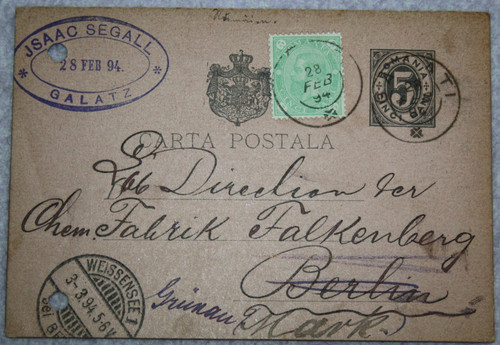 JSAAC SEGALL
28 FEB 94.
GALATZ
28
FEB
94
ROMANIA
5
CARTA POSTALA
Direction der
Chem. Fabrik Falkenberg
Berlin
Grünau (Mark.)
WEISSENSEE 1
3.3.94.5-6N.